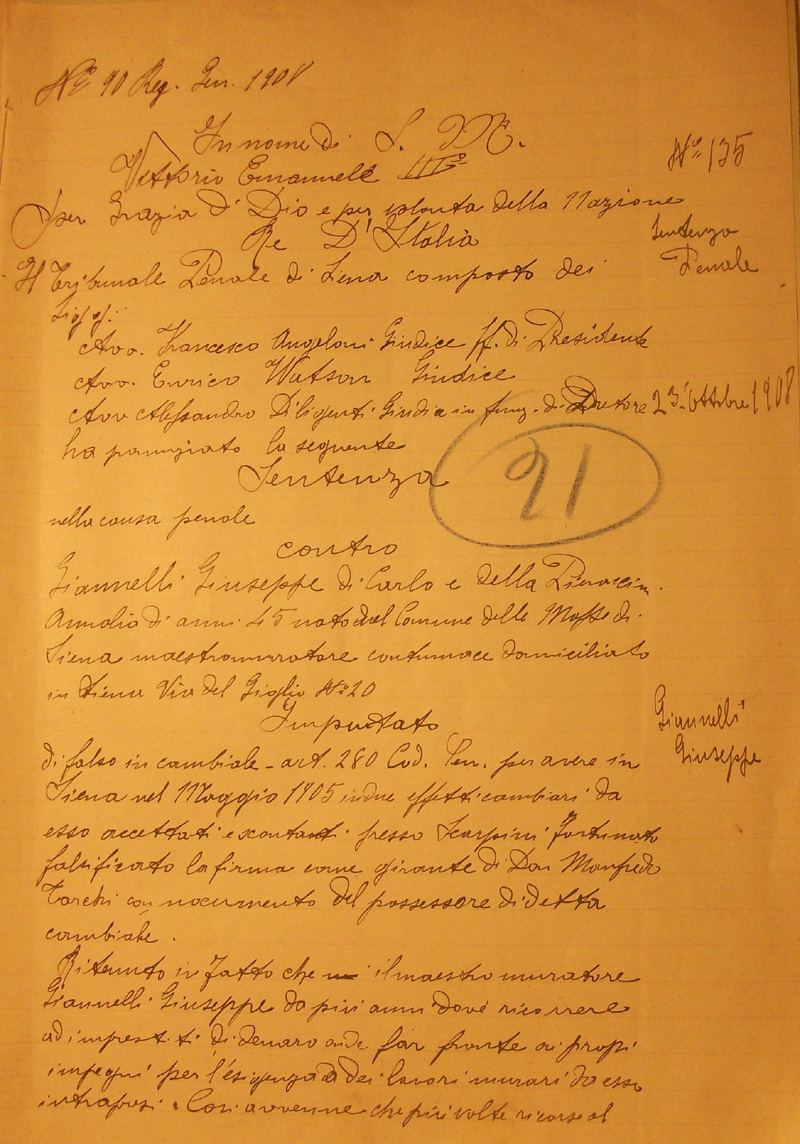 N° 90 Reg. Gen. 1908
In nome di S. M.
N° 135
Vittorio Emanuele III°
per Grazia d' Dio e per volonta della Nazione
Re D'Italia
Sentenza
Penale
Il Tribunale Penale di Siena composto dei
Sigg:
Avv. Francesco Angeloni Giudice ff. di Presidente
Avv. Enrico Watson Giudice
Avv Alessandro Diligenti Giudice in funz. di Pretore 23. Ottobre 1908
ha pronunziato la seguente
Sentenza
91
nella causa penale
contro
Giannelli Giuseppe di Carlo e della
Annalia di anni 45 nato nel Comune delle Masse di
Siena maestro muratore contumace domiciliato
in Siena Via del Giglio N° 20
Imputato
Giannelli
Giuseppe
di falso in cambiale - art. 280 Cod. Pen. per avere in
Siena nel Maggio 1905 in due effetti cambiari da
esso accettati e scontati presso Scarpini Fortunato
falsificato la firma come girante di Don Manfredo
Tarchi con nocumento del possessore di detta
cambiale.
Ritenuto in fatto che il maestro muratore
Giannelli Giuseppe da piu anni dové ricorrere
ad imprestiti di denaro onde far fronte ai propi
impegni per l'esigenza dei lavori murari da esso
intrapresi. Cosi avvenne che piu volte ricorse al